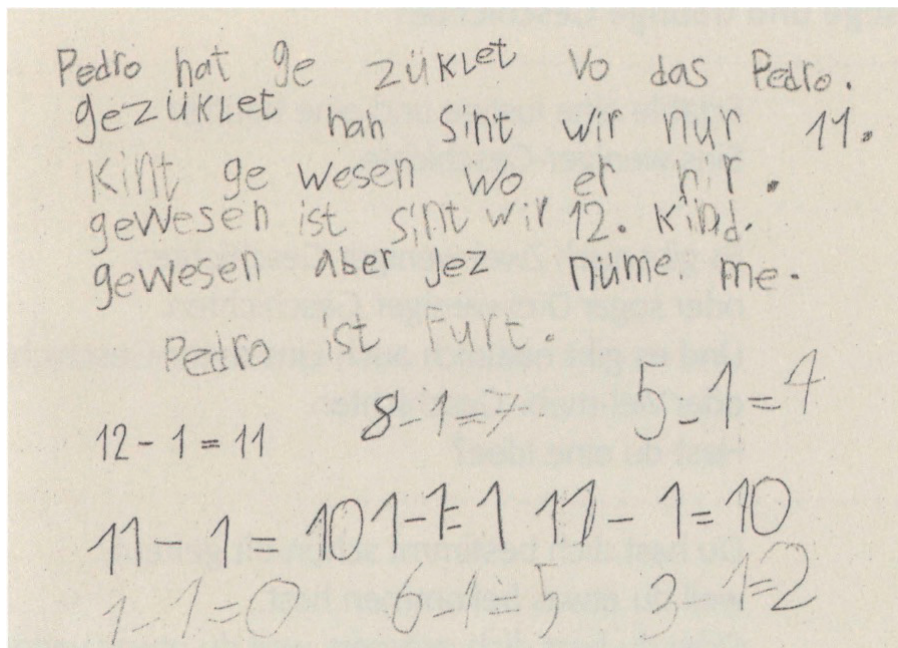 Pedro hat ge züklet vo das Pedro.
gezüklet nah sint wir nur 11.
Kint ge wesen wo er hir.
gewesen ist sint wir 12. Kind.
gewesen aber jez nüme. me.
Pedro ist Furt.
12 - 1 = 11 8 - 1 = 7 5 - 1 = 4
11 - 1 = 10 1 - 1 = 1 11 - 1 = 10
1 - 1 = 0 6 - 1 = 5 3 - 1 = 2